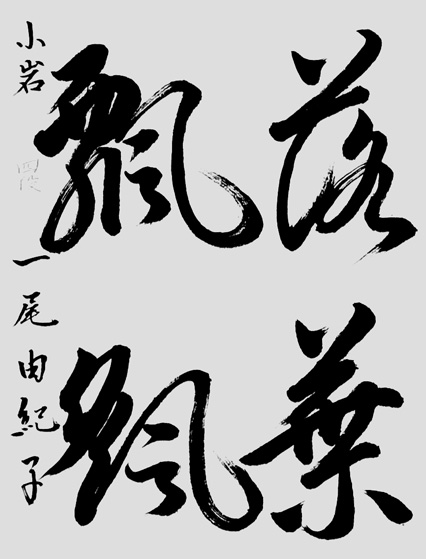 落葉
飄颻
小岩 四段 一尾由紀子